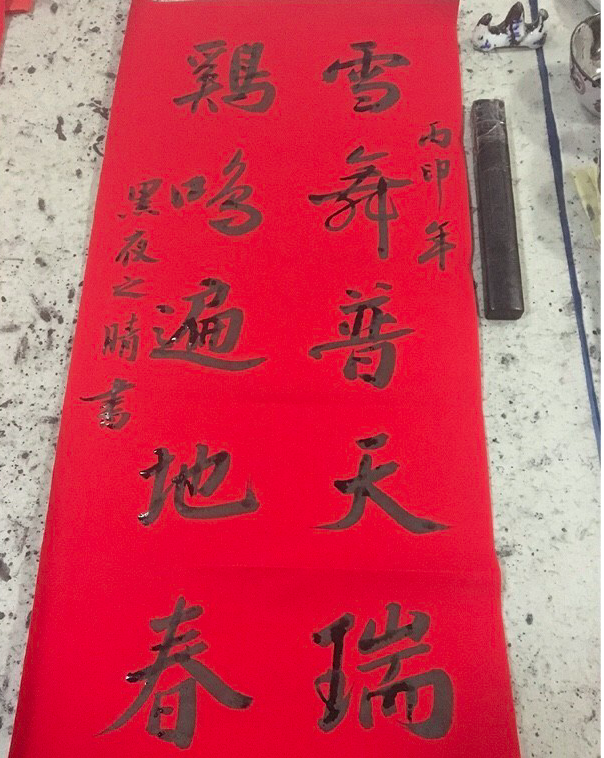 丙申年
雪舞普天瑞
鷄鳴遍地春
黑夜之晴书